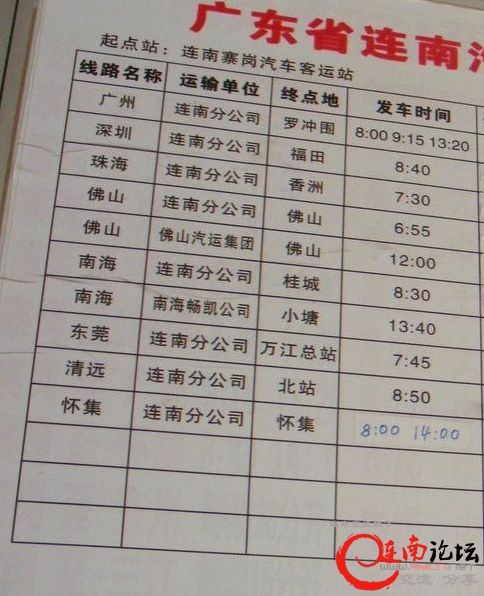 广东省连南
起点站：连南寨岗汽车客运站
线路名称 运输单位 终点地 发车时间
广州 连南分公司 罗冲围 8:00 9:15 13:20
深圳 连南分公司 福田 8:40
珠海 连南分公司 香洲 7:30
佛山 连南分公司 佛山 6:55
佛山 佛山汽运集团 佛山 12:00
南海 连南分公司 桂城 8:30
南海 南海畅凯公司 小塘 13:40
东莞 连南分公司 万江总站 7:45
清远 连南分公司 北站 8:50
怀集 连南分公司 怀集 8:00 14:00
连南论坛
交流 分享